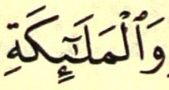 وَٱلْمَلَٰٓئِكَةِ